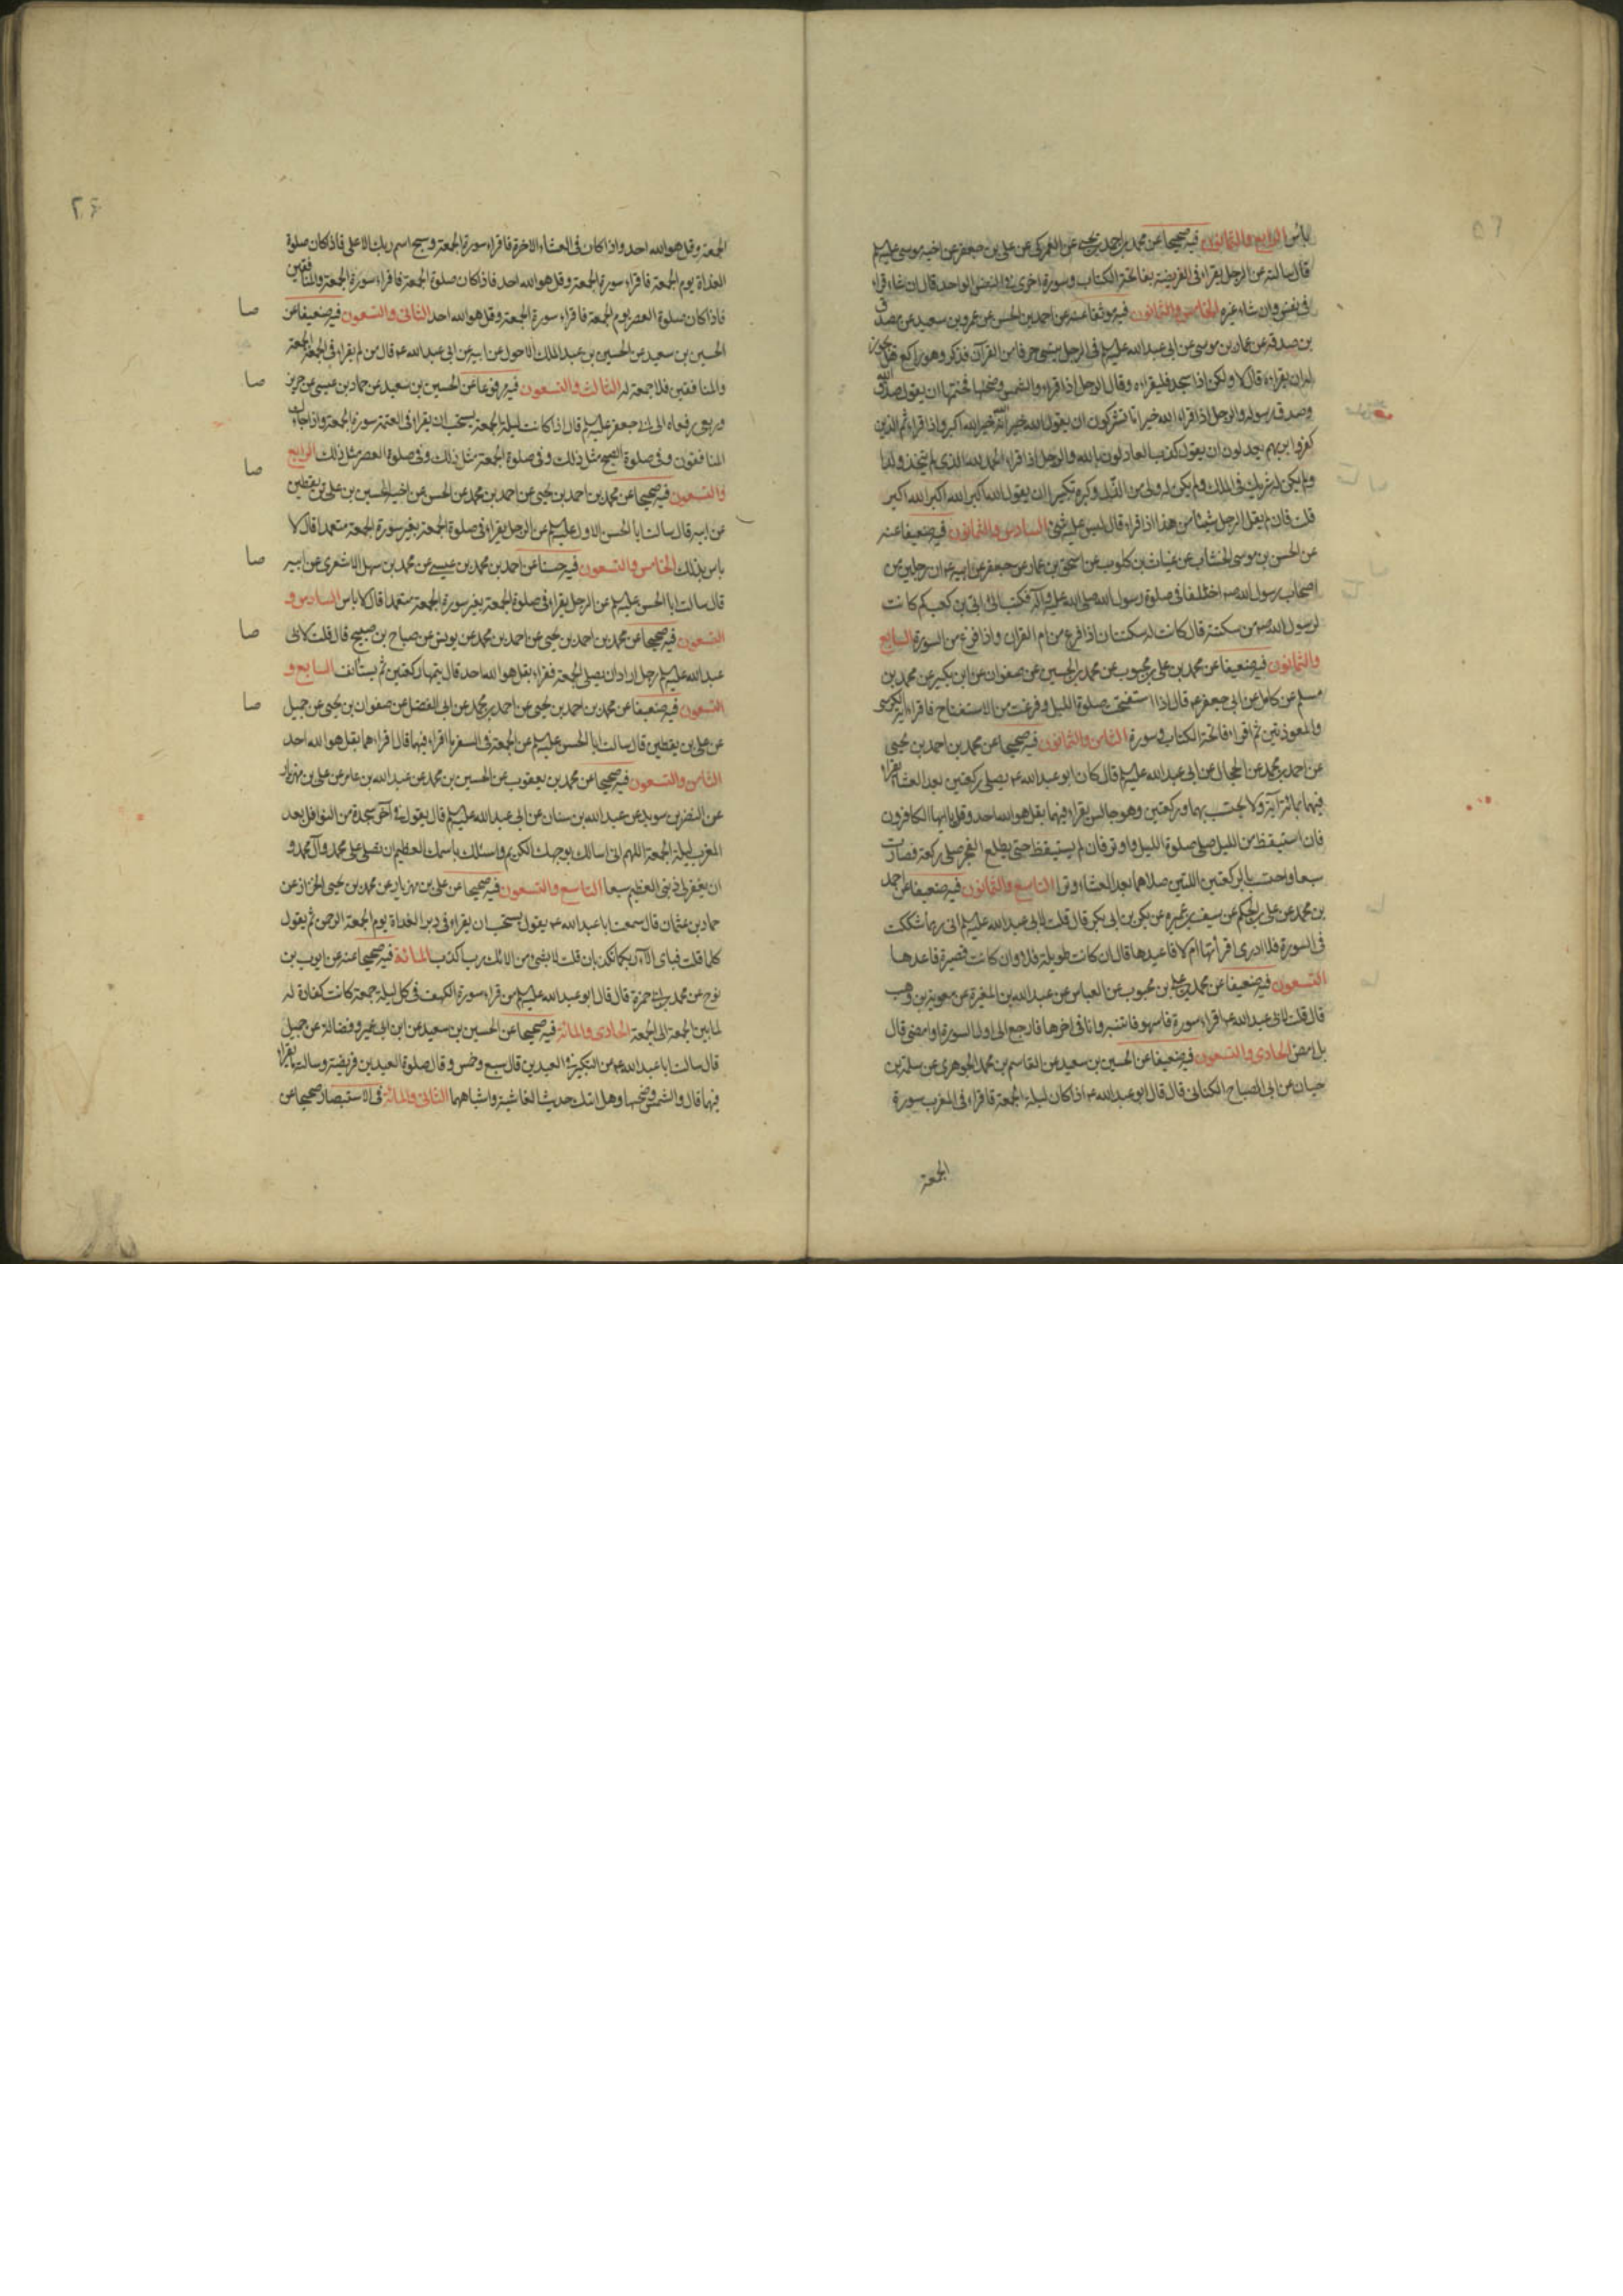 باس الرابع والثمانون فيه صحيحا عن محمد بن احمد بن يحيى عن العمركى عن على بن جعفر عن اخيه موسى عليه السلم
قال سالته عن الرجل يقراء فى الفريضة بفاتحة الكتاب وسورة اخرى فى النفس الواحد قال ان شاء قراء
فى نفس وان شاء غيره الخامس والثمانون فيه موثقا عنه عن احمد بن الحسن عن عمرو بن سعيد عن مصدق
بن صدقة عن عمار بن موسى عن ابى عبد الله عليه السلم فى الرجل ينسى حرفا من القرآن فذكر وهو راكع هل يجوز
له ان يقراءه قال لا ولكن اذا سجد فليقراءه وقال الرجل اذا قراء والشمس وضحيها فختمها ان يقول صدق الله
وصدق رسوله والرجل اذا قراء الله خير اما تشركون ان يقول الله خير الله خير الله اكبر واذا قراء ثم الذين
كفروا بربهم يعدلون ان يقول كذب العادلون بالله والرجل اذا قراء الحمد لله الذى لم يتخذ ولدا
ولم يكن له شريك فى الملك ولم يكن له ولى من الذل وكبره تكبيرا ان يقول الله اكبر الله اكبر الله اكبر
قلت فان لم يقل الرجل شيئا من هذا اذا قراء قال ليس عليه شئ السادس والثمانون فيه ضعيفا عنه
عن الحسن بن موسى الخشاب عن غياث بن كلوب عن اسحق بن عمار عن جعفر عن ابيه ع ان رجلين من
اصحاب رسول الله ص اختلفا فى صلوة رسول الله صلى الله عليه وآله فكتب الى ابى بن كعب كم كانت
لرسول الله ص من سكتة قال كانت له سكتتان اذا فرغ من ام القران واذا فرغ من السورة السابع
والثمانون فيه ضعيفا عن محمد بن على بن محبوب عن محمد بن الحسين عن صفوان عن ابن بكير عن محمد بن
مسلم عن كامل عن ابى جعفر ع قال اذا استفتحت صلوة الليل وفرغت من الاستفتاح فاقراء اية الكرسى
والمعوذتين ثم اقراء فاتحة الكتاب وسورة الثامن والثمانون فيه صحيحا عن محمد بن احمد بن يحيى
عن احمد بن محمد عن الحجال عن ابى عبد الله عليه السلم قال كان ابو عبد الله ع يصلى ركعتين بعد العشا يقراء
فيهما بمائة آية ولا يحتسب بهما وركعتين وهو جالس يقراء فيهما بقل هو الله احد وقل يا ايها الكافرون
فان استيقظ من الليل صلى صلوة الليل واوتر فان لم يستيقظ حتى يطلع الفجر صلى ركعة فصارت
سبعا واحتسب بالركعتين اللتين صلاهما بعد العشاء وترا التاسع والثمانون فيه ضعيفا عن احمد
بن محمد عن على بن الحكم عن سيف بن عميره عن بكر بن ابى بكر قال قلت لابى عبد الله عليه السلم انى ربما شككت
فى السورة فلا ادرى اقرأتها ام لا فاعيدها قال ان كانت طويلة فلا وان كانت قصيرة فاعدها
التسعون فيه ضعيفا عن محمد بن على بن محبوب عن العباس عن عبد الله بن المغيرة عن معوية بن وهب
قال قلت لابى عبد الله ع اقراء سورة فاسهو فانتبه وانا فى اخرها فارجع الى اول السورة او امضى قال
بل امض الحادى والتسعون فيه ضعيفا عن الحسين بن سعيد عن القاسم بن محمد الجوهرى عن سلمة بن
حيان عن ابى الصباح الكنانى قال قال ابو عبد الله ع اذا كان ليلة الجمعة فاقراء فى المغرب سورة
الجمعة
٢٦
الجمعة وقل هو الله احد واذا كان فى العشاء الاخرة فاقراء سورة الجمعة وسبح اسم ربك الاعلى فاذا كان صلوة
الغداة يوم الجمعة فاقراء سورة الجمعة وقل هو الله احد فاذا كان صلوة الجمعة فاقراء سورة الجمعة والمنافقين
فاذا كان صلوة العصر يوم الجمعة فاقراء سورة الجمعة وقل هو الله احد الثانى والتسعون فيه ضعيفا عن
صا
الحسين بن سعيد عن الحسين بن عبد الملك الاحول عن ابيه عن ابى عبد الله ع قال من لم يقراء فى الجمعة الجمعة
والمنافقين فلا جمعة له الثالث والتسعون فيه مرفوعا عن الحسين بن سعيد عن حماد بن عيسى عن حريز
صا
وربعى رفعاه الى ابى جعفر عليه السلم قال اذا كانت ليلة الجمعة يستحب ان يقراء فى العتمة سورة الجمعة واذا جاءك
المنافقون وفى صلوة الصبح مثل ذلك وفى صلوة الجمعة مثل ذلك وفى صلوة العصر مثل ذلك الرابع
صا
والتسعون فيه صحيحا عن محمد بن احمد بن يحيى عن احمد بن محمد عن الحسن عن اخيه الحسين بن على بن يقطين
عن ابيه قال سالت ابا الحسن الاول عليه السلم عن الرجل يقراء فى صلوة الجمعة بغير سورة الجمعة متعمدا قال لا
باس بذلك الخامس والتسعون فيه حسنا عن احمد بن محمد بن عيسى عن محمد بن سهل الاشعرى عن ابيه
صا
قال سالت ابا الحسن عليه السلم عن الرجل يقراء فى صلوة الجمعة بغير سورة الجمعة متعمدا قال لا باس السادس و
التسعون فيه صحيحا عن محمد بن احمد بن يحيى عن احمد بن محمد عن يونس عن صباح بن صبيح قال قلت لابى
صا
عبد الله عليه السلم رجل اراد ان يصلى الجمعة فقراء بقل هو الله احد قال يتمها ركعتين ثم يستانف السابع و
التسعون فيه ضعيفا عن محمد بن احمد بن يحيى عن احمد بن محمد عن ابى الفضل عن صفوان بن يحيى عن جميل
صا
عن على بن يقطين قال سالت ابا الحسن عليه السلم عن الجمعة فى السفر ما اقراء فيهما قال اقراءهما بقل هو الله احد
الثامن والتسعون فيه صحيحا عن محمد بن يعقوب عن الحسين بن محمد عن عبد الله بن عامر عن على بن مهزيار
عن النضر بن سويد عن عبد الله بن سنان عن ابى عبد الله عليه السلم قال يقول فى آخر سجدة من النوافل بعد
المغرب ليلة الجمعة اللهم انى اسالك بوجهك الكريم واسئلك باسمك العظيم ان تصلى على محمد وآل محمد و
ان يغفر لى ذنبى العظيم سبعا التاسع والتسعون فيه صحيحا عن على بن مهزيار عن محمد بن يحيى الخزاز عن
حماد بن عثمان قال سمعت ابا عبد الله ع يقول يستحب ان يقراء فى دبر الغداة يوم الجمعة الرحمن ثم يقول
كلما قلت فباى الآء ربكما تكذبان قلت لا بشئ من الائك رب اكذب المائة فيه صحيحا عنه عن ايوب بن
نوح عن محمد بن ابى حمزة قال قال ابو عبد الله عليه السلم من قراء سورة الكهف فى كل ليلة جمعة كانت كفارة له
لما بين الجمعة الى الجمعة الحادى والمائة فيه صحيحا عن الحسين بن سعيد عن ابن ابى عمير وفضالة عن جميل
قال سالت ابا عبد الله ع عن التكبير فى العيدين قال سبع وخمس وقال صلوة العيدين فريضة وسالته ما يقراء
فيهما قال والشمس وضحيها وهل اتيك حديث الغاشية واشباههما الثانى والمائة فى الاستبصار صحيحا عن